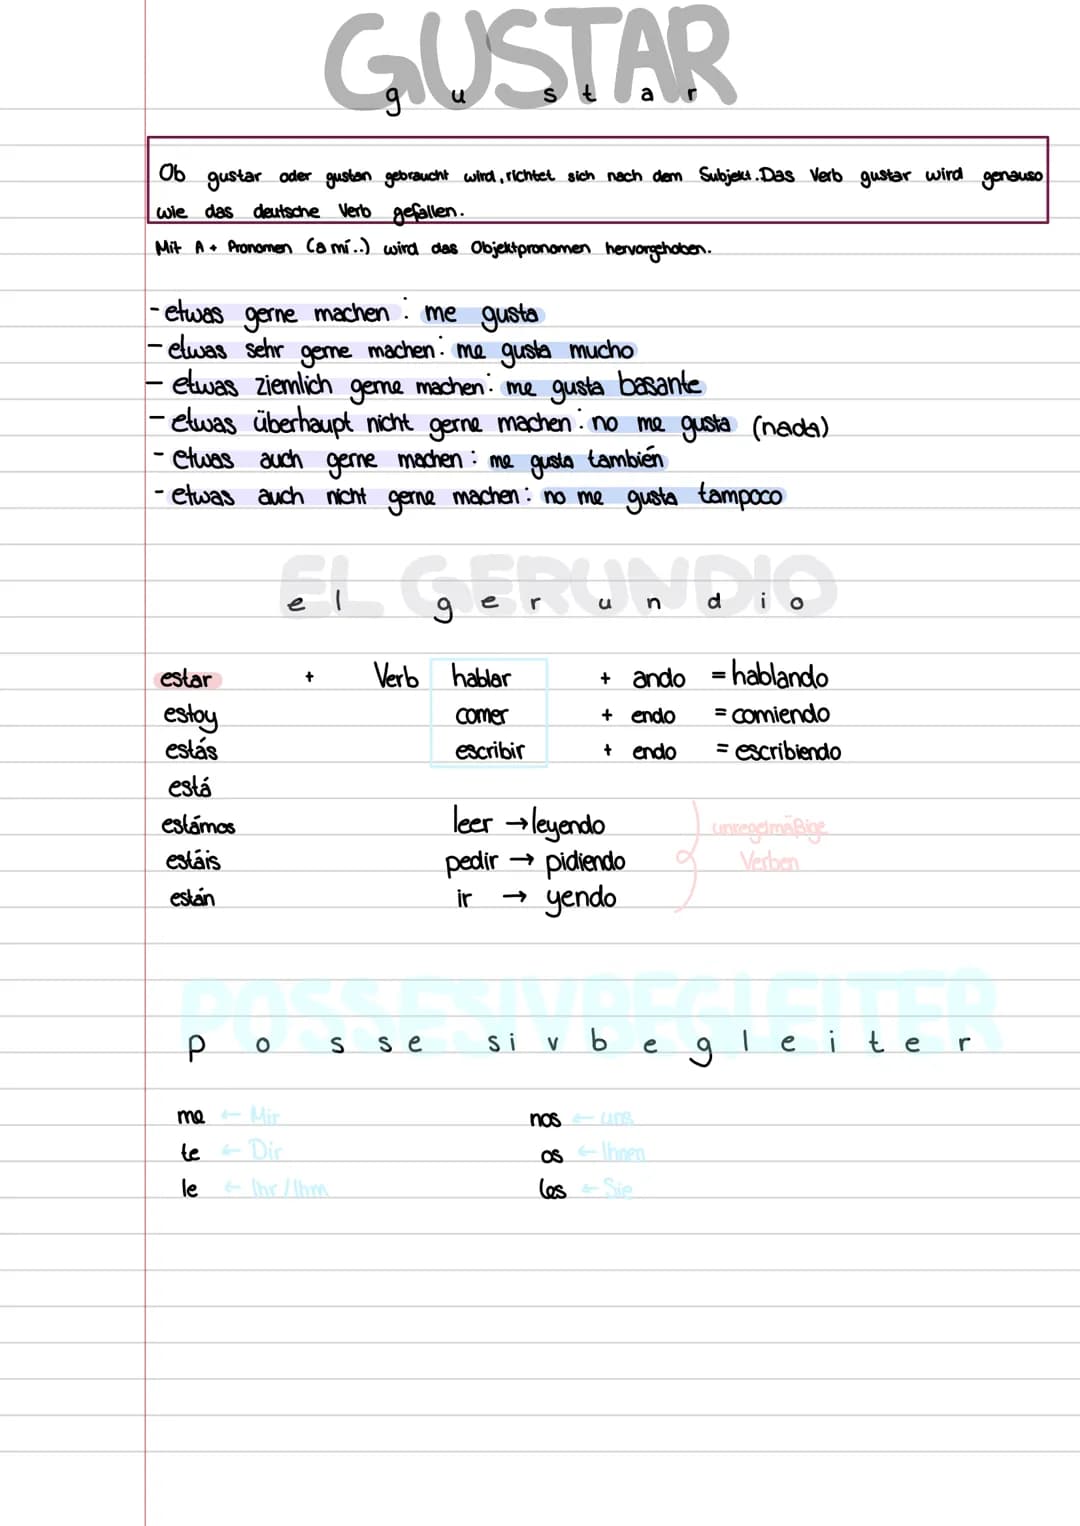 GUSTAR
gustar
Ob gustar oder gustan gebraucht wird, richtet sich nach dem Subjekt. Das Verb gustar wird genauso
wie das deutsche Verb gefallen.
Mit A + Pronomen (a mí..) wird das Objektpronomen hervorgehoben.
- etwas gerne machen: me gusta
- etwas sehr gerne machen: me gusta mucho
- etwas ziemlich gerne machen: me gusta basante
- etwas überhaupt nicht gerne machen: no me gusta (nada)
- etwas auch gerne machen: me gusta también
- etwas auch nicht gerne machen: no me gusta tampoco
EL GERUNDIO
el gerundio
estar + Verb hablar + ando = hablando
estoy comer + endo = comiendo
estás escribir + endo = escribiendo
está
estámos leer → leyendo unregelmäßige
estáis pedir → pidiendo Verben
están ir → yendo
POSSESIVBEGLEITER
possesivbegleiter
me ← Mir nos ← uns
te ← Dir os ← Ihnen
le ← Ihr/Ihm les ← Sie